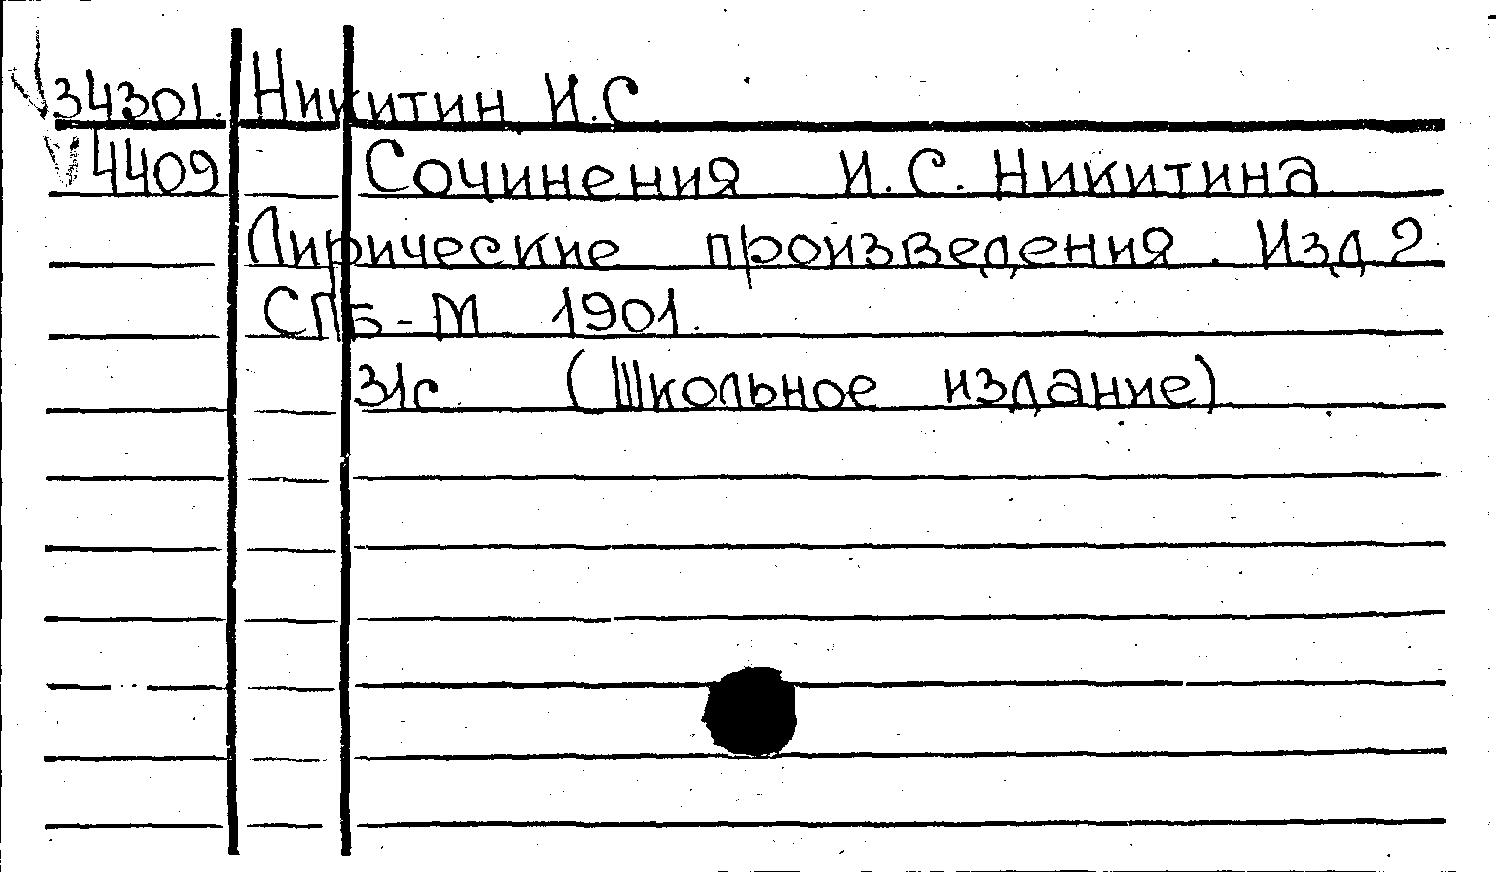 34301. Никитин И.С.
4409 Сочинения И.С. Никитина
Лирические произведения. Изд 2
СПБ-М 1901.
31с (Школьное издание)